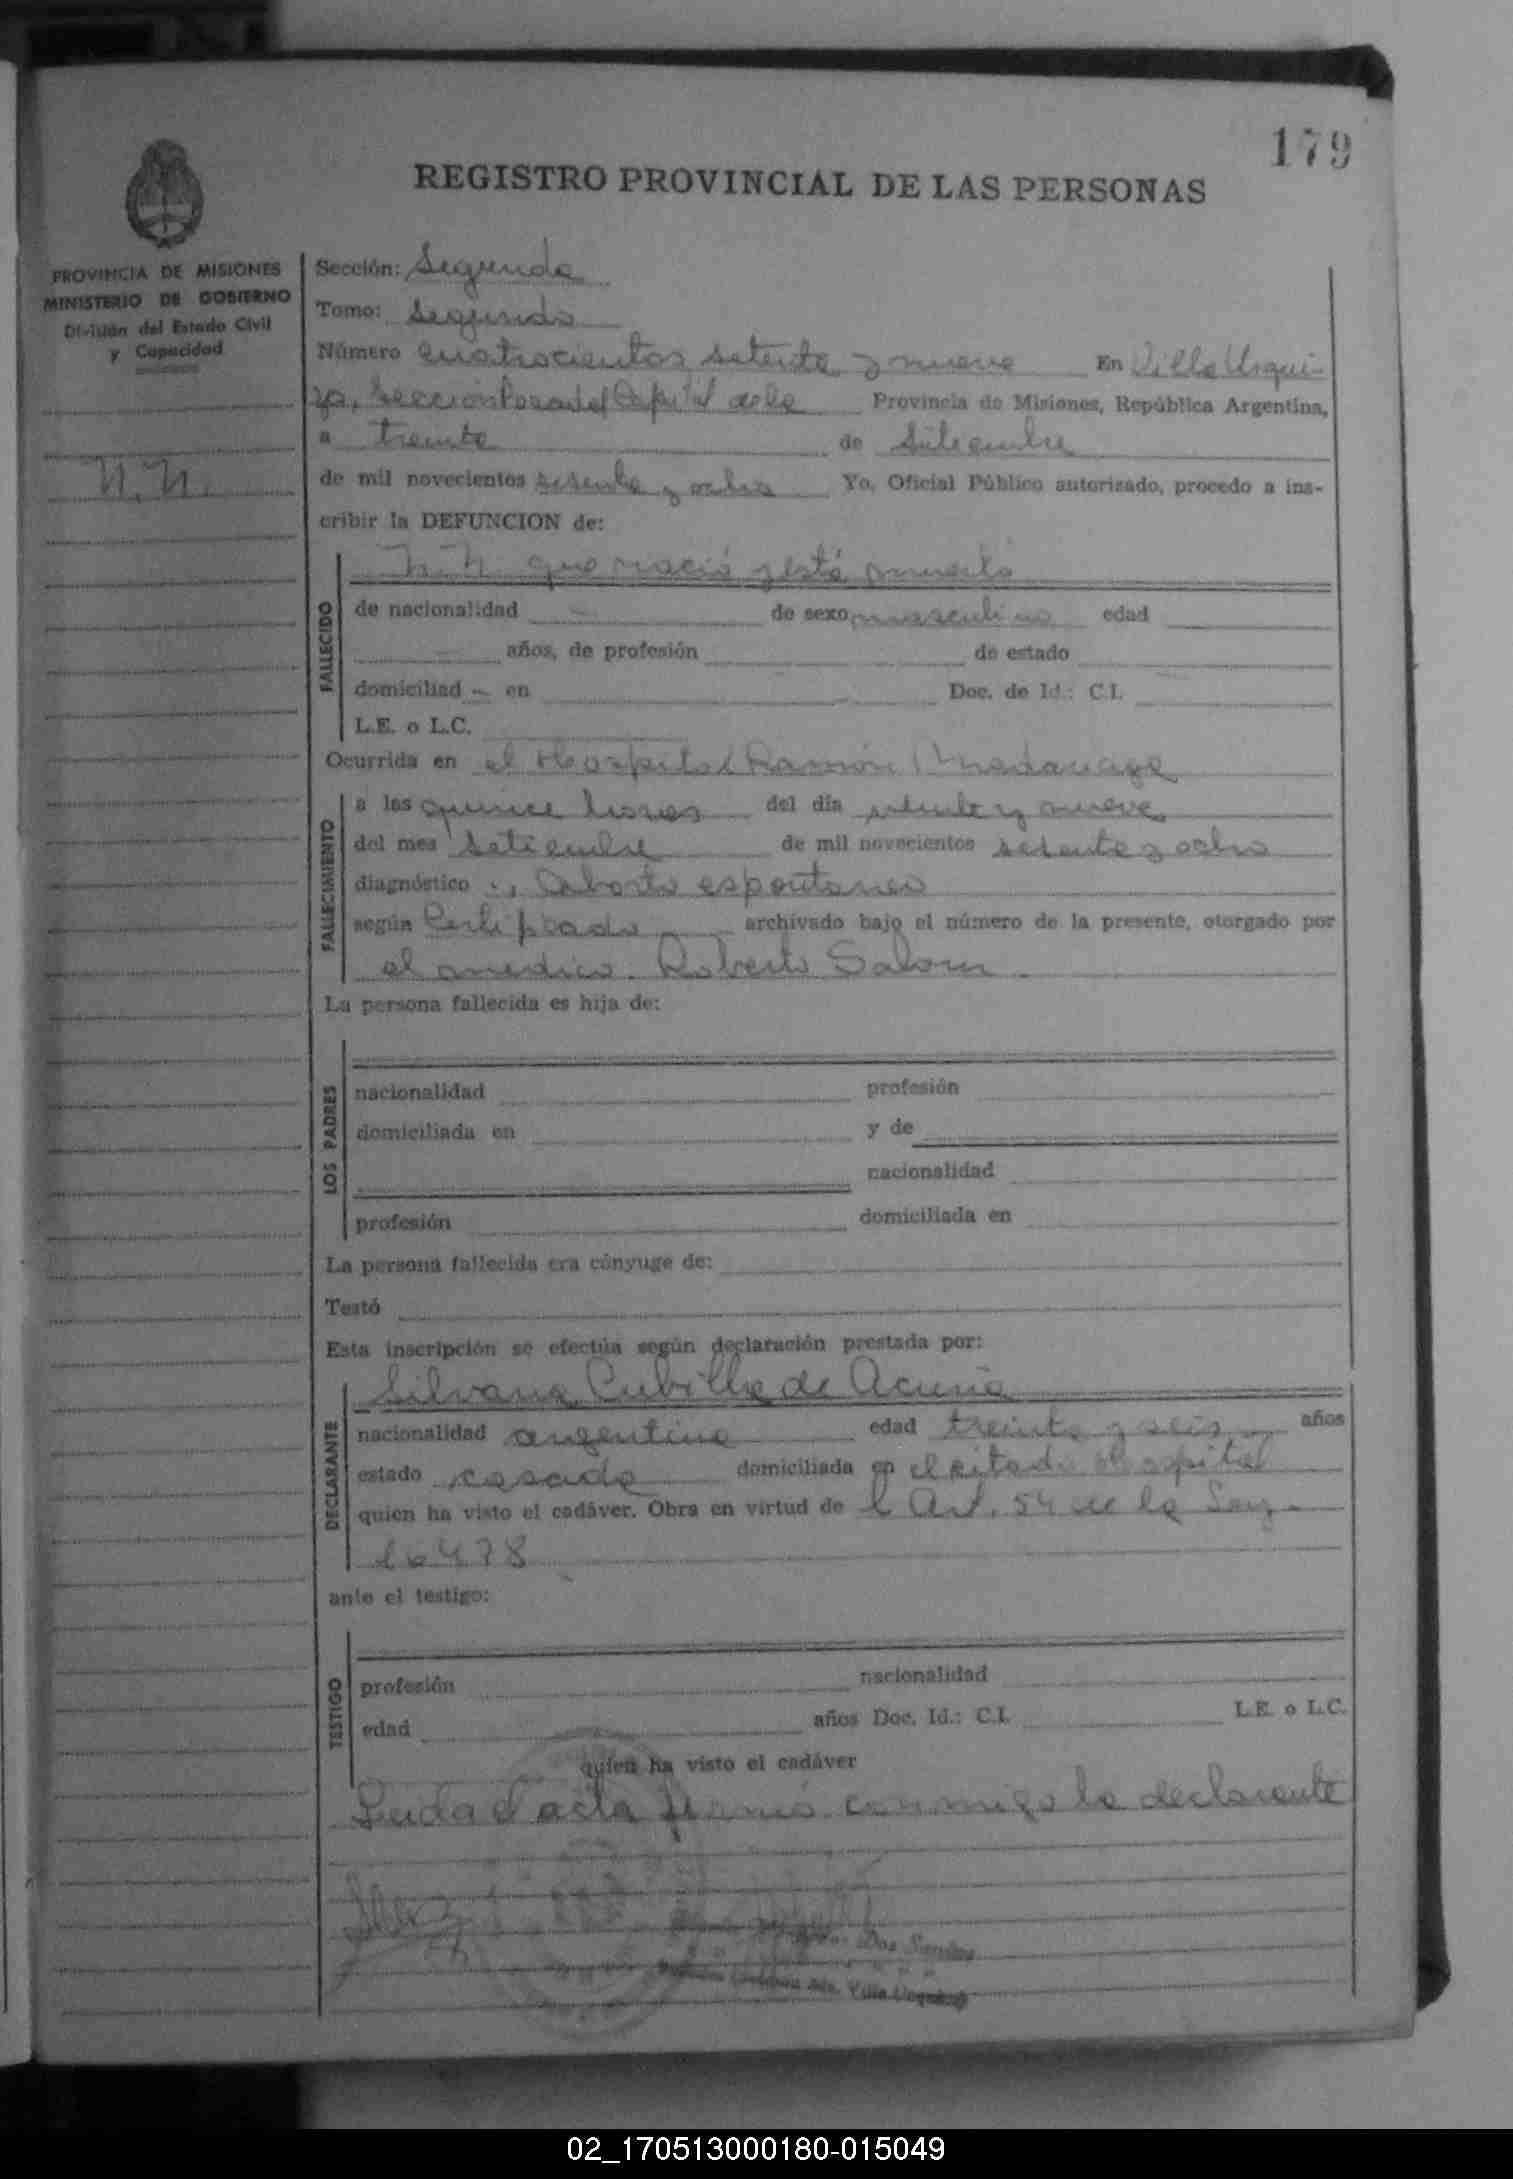 179
REGISTRO PROVINCIAL DE LAS PERSONAS
PROVINCIA DE MISIONES
MINISTERIO DE GOBIERNO
División del Estado Civil
y Capacidad
N.N.
Sección: Segunda
Tomo: Segundo
Número cuatrocientos setenta y nueve En Villa Urqui-
za, Sección Posadas Capital de la Provincia de Misiones, República Argentina,
a treinta de Setiembre
de mil novecientos setenta y ocho Yo, Oficial Público autorizado, procedo a ins-
cribir la DEFUNCION de:
FALLECIDO
N.N. que nació y está muerto
de nacionalidad de sexo masculino edad
años, de profesión de estado
domiciliad en Doc. de Id.: C.I.
L.E. o L.C.
Ocurrida en el Hospital Ramón Madariaga
FALLECIMIENTO
a las quince horas del día veinte y nueve
del mes Setiembre de mil novecientos setenta y ocho
diagnóstico Aborto espontaneo
según Certificado archivado bajo el número de la presente, otorgado por
el medico. Roberto
La persona fallecida es hija de:
LOS PADRES
nacionalidad profesión
domiciliada en y de
nacionalidad
profesión domiciliada en
La persona fallecida era cónyuge de:
Testó
Esta inscripción se efectúa según declaración prestada por:
DECLARANTE
Silvana Cubilla de Acuña
nacionalidad argentina edad treinta y seis años
estado casada domiciliada en el citado Hospital
quien ha visto el cadáver. Obra en virtud de l Art. 54 de la Ley
16478
ante el testigo:
TESTIGO
profesión nacionalidad
edad años Doc. Id.: C.I. L.E. o L.C.
quien ha visto el cadáver
Leida el acta firmó conmigo la declarante
Dos Santos
Villa Urquiza
02_170513000180-015049